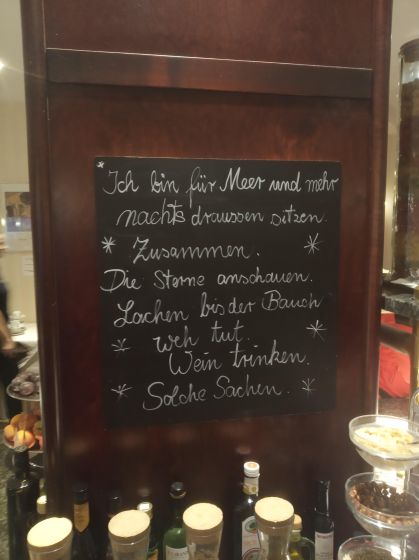 Ich bin für Meer und mehr
nachts draussen sitzen.
Zusammen.
Die Sterne anschauen.
Lachen bis der Bauch
weh tut.
Wein trinken.
Solche Sachen.